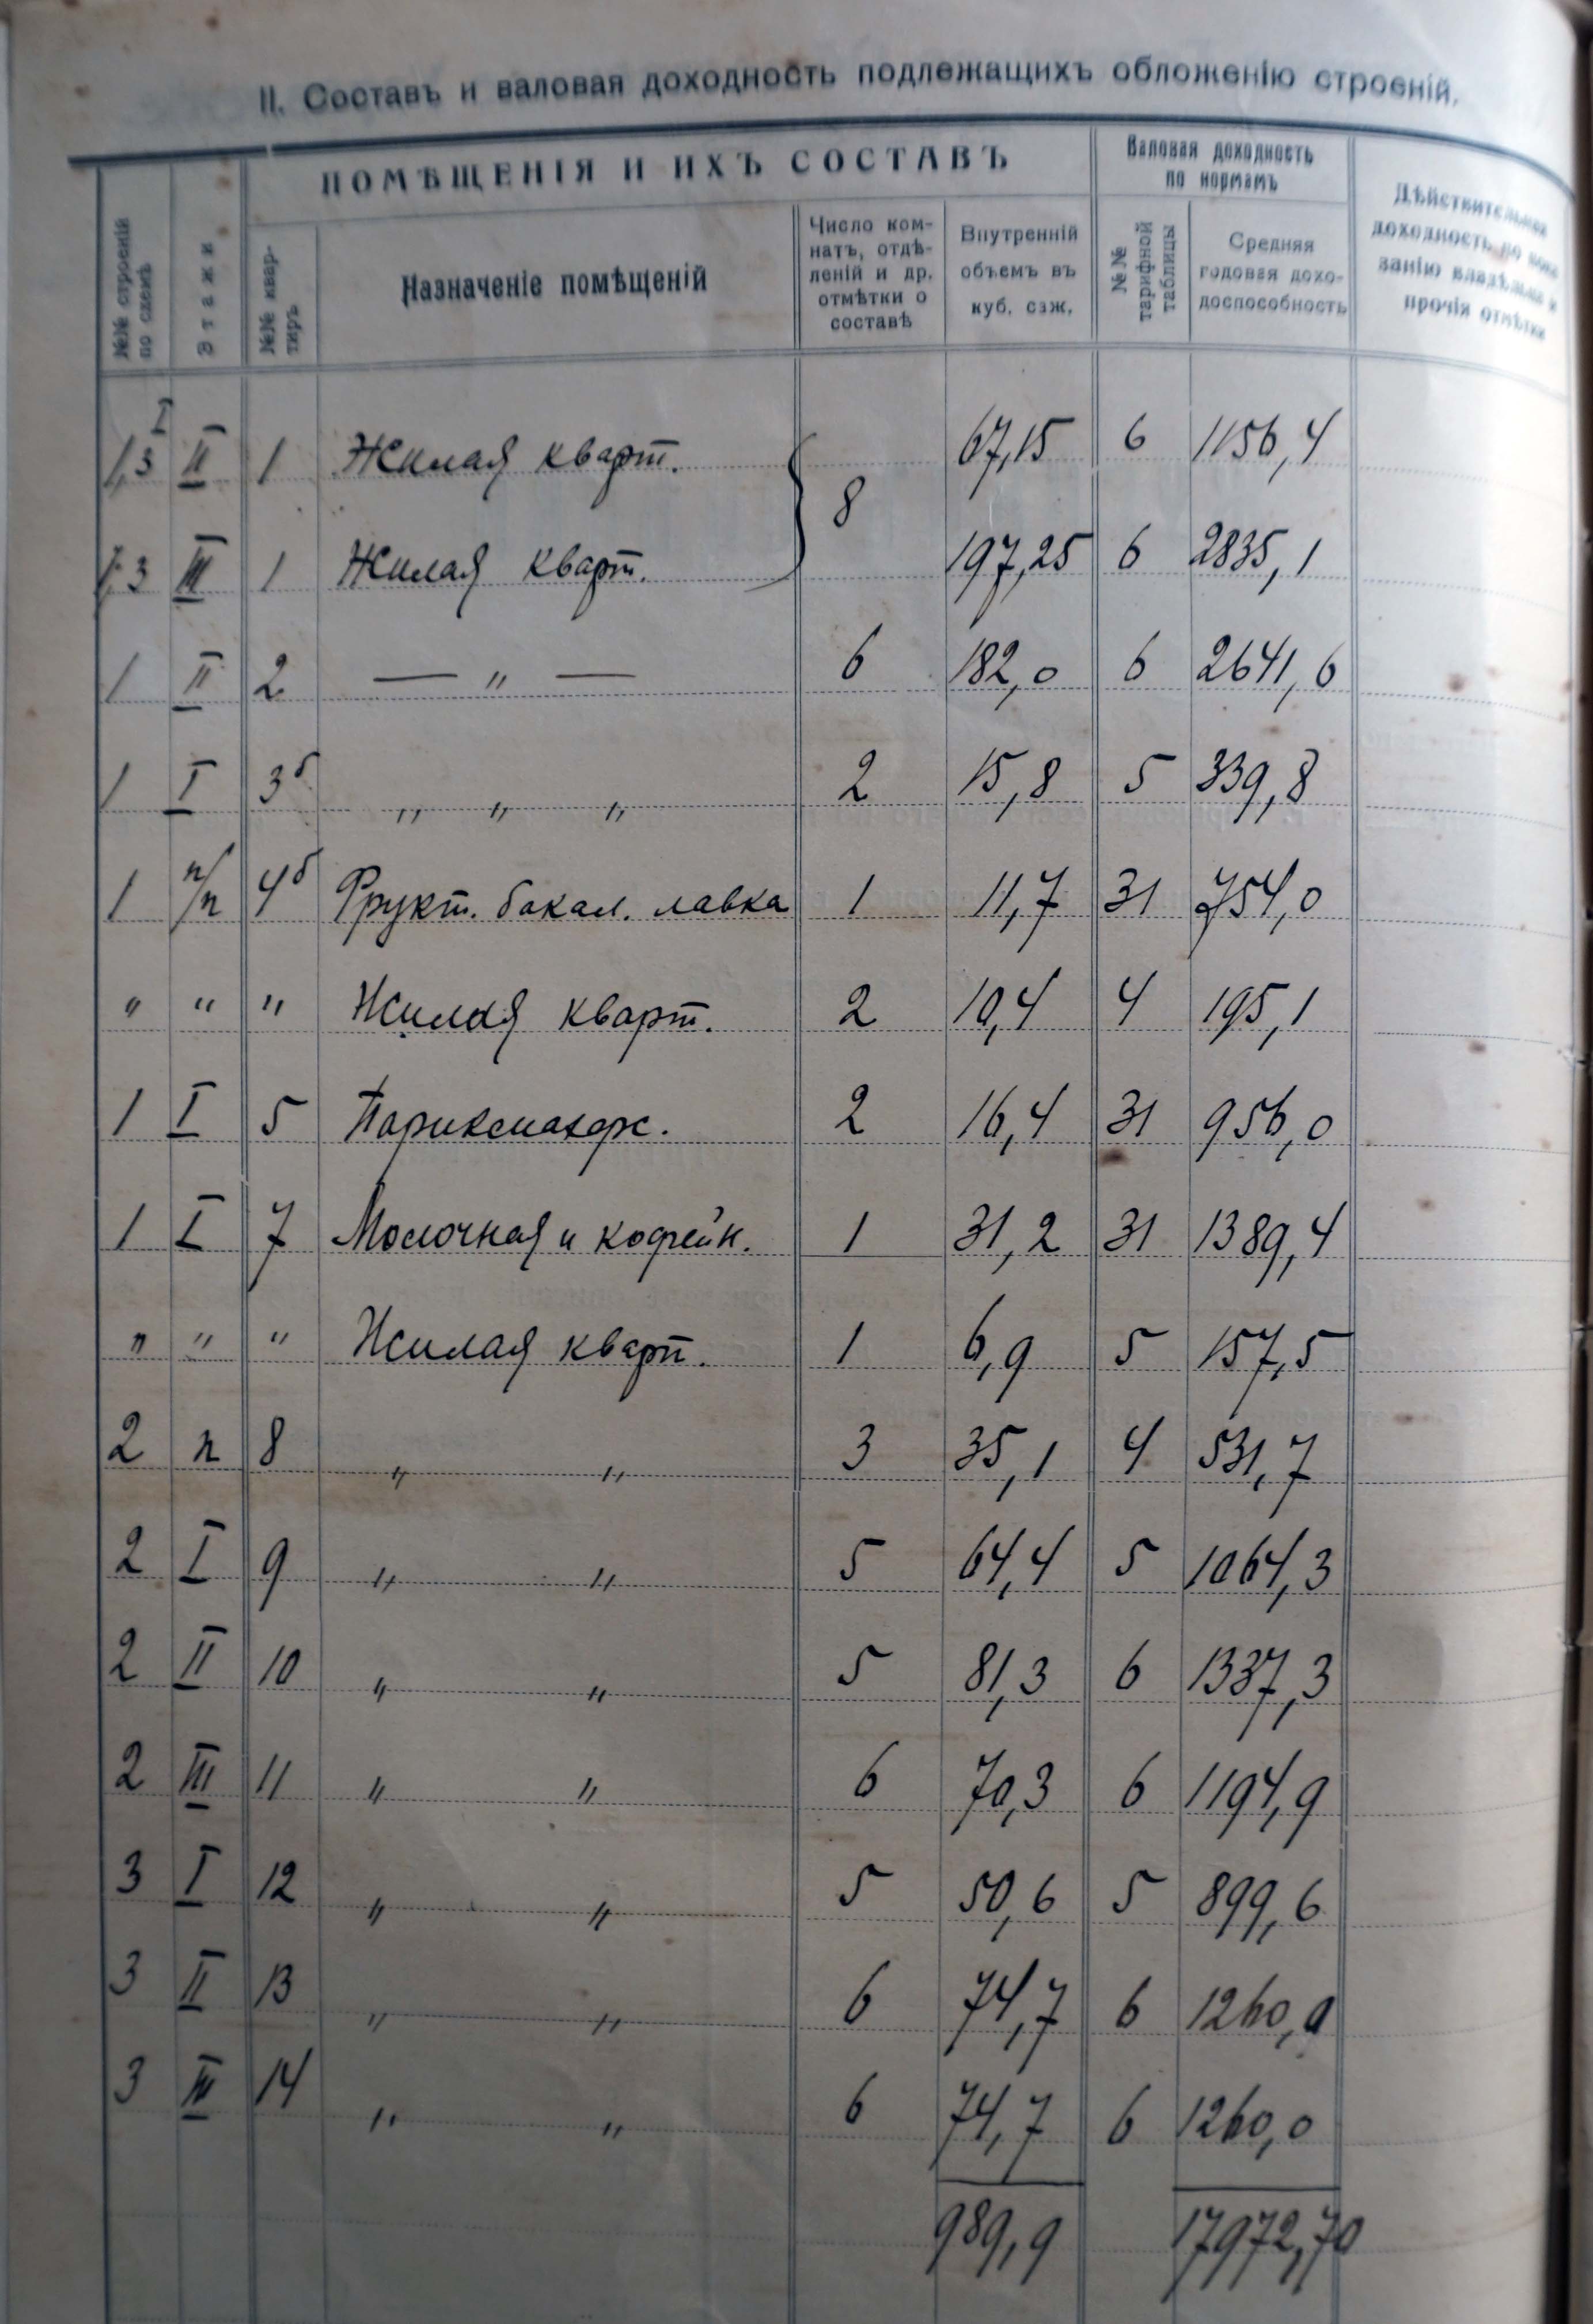 II. Составъ и валовая доходность подлежащихъ обложенію строеній.
№№ строеній по схемѣ
Этажи
ПОМѢЩЕНІЯ И ИХЪ СОСТАВЪ
№№ квар-
тиръ
Назначеніе помѣщеній
Число ком-
натъ, отдѣ-
леній и др.
отмѣтки о
составѣ
Внутренній
объемъ въ
куб. саж.
Валовая доходность
по нормамъ
№№
тарифной
таблицы
Средняя
годовая дохо-
доспособность
Дѣйствительная
доходность по пока-
занію владѣльца и
прочія отмѣтки
1,3 I II 1 Жилая кварт. 67,15 6 1156,4
8
1,3 III 1 Жилая кварт. 197,25 6 2835,1
1 II 2 — „ — 6 182,0 6 2641,6
1 I 3б „ „ „ 2 15,8 5 339,8
1 п/п 4б Фрукт. бакал. лавка 1 11,7 31 754,0
„ „ „ Жилая кварт. 2 10,4 4 195,1
1 I 5 Парикмахерс. 2 16,4 31 956,0
1 I 7 Молочная и кофейн. 1 31,2 31 1389,4
„ „ „ Жилая кварт. 1 6,9 5 157,5
2 п 8 „ „ 3 35,1 4 531,7
2 I 9 „ „ 5 64,4 5 1064,3
2 II 10 „ „ 5 81,3 6 1337,3
2 III 11 „ „ 6 70,3 6 1194,9
3 I 12 „ „ 5 50,6 5 899,6
3 II 13 „ „ 6 74,7 6 1260,0
3 III 14 „ „ 6 74,7 6 1260,0
989,9 17972,70